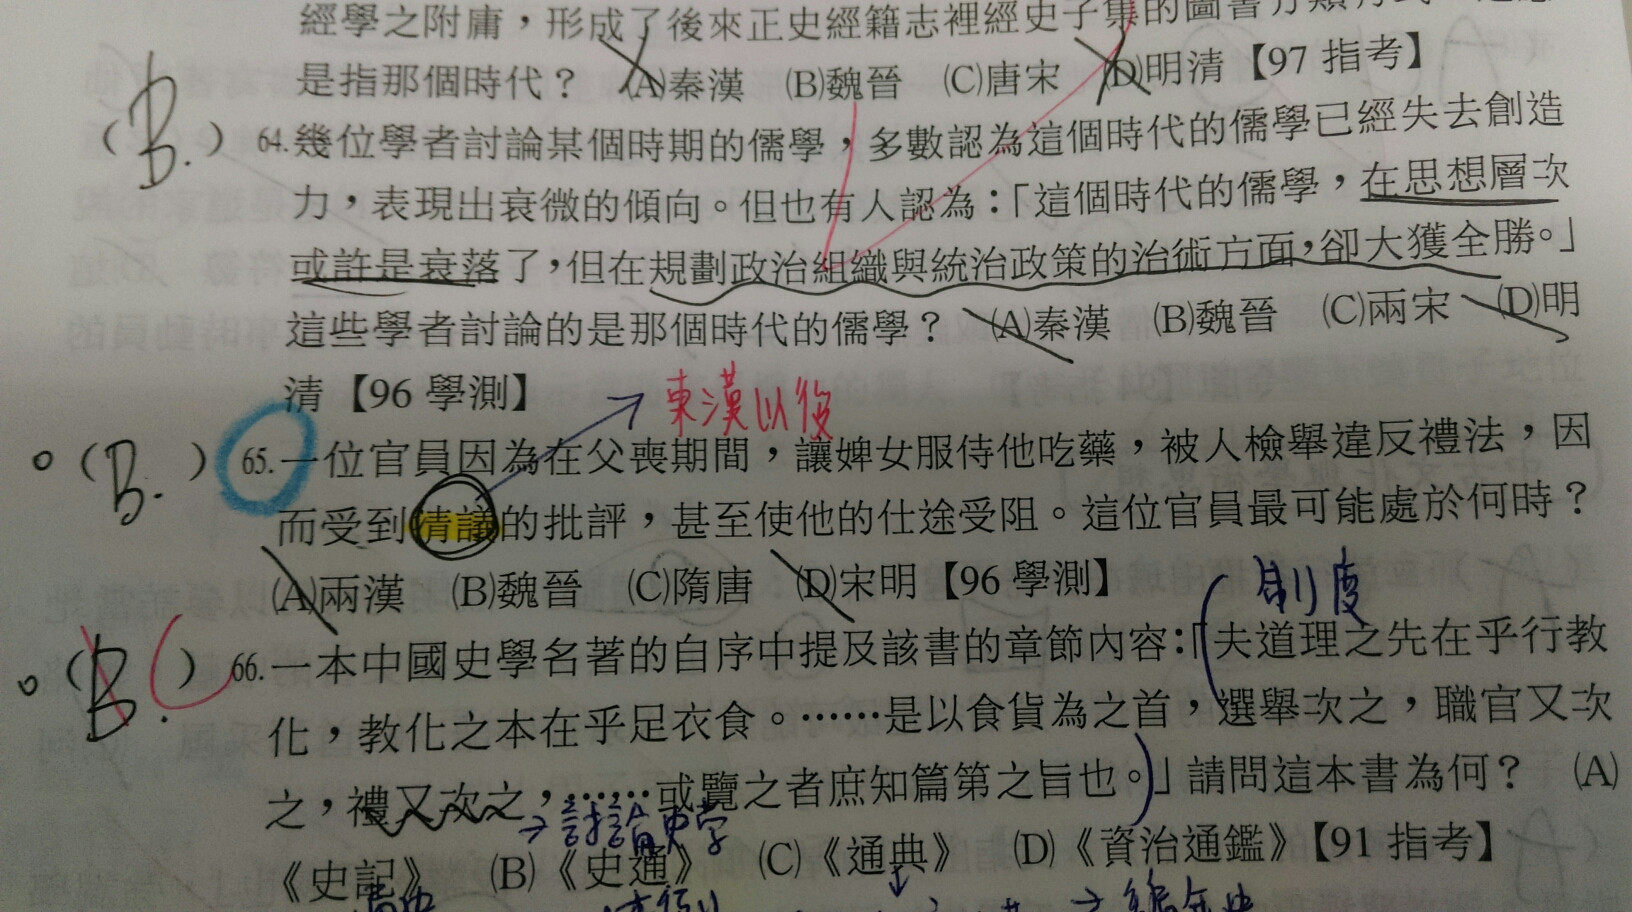 經學之附庸，形成了後來正史經籍志裡經史子集的圖書分類方式。
是指那個時代？ (A)秦漢 (B)魏晉 (C)唐宋 (D)明清【97 指考】
(B.) 64.幾位學者討論某個時期的儒學，多數認為這個時代的儒學已經失去創造
力，表現出衰微的傾向。但也有人認為：「這個時代的儒學，在思想層次
或許是衰落了，但在規劃政治組織與統治政策的治術方面，卻大獲全勝。」
這些學者討論的是那個時代的儒學？ (A)秦漢 (B)魏晉 (C)兩宋 (D)明
清【96 學測】
東漢以後
(B.) 65.一位官員因為在父喪期間，讓婢女服侍他吃藥，被人檢舉違反禮法，因
而受到清議的批評，甚至使他的仕途受阻。這位官員最可能處於何時？
(A)兩漢 (B)魏晉 (C)隋唐 (D)宋明【96 學測】
制度
(B.) 66.一本中國史學名著的自序中提及該書的章節內容：「夫道理之先在乎行教
化，教化之本在乎足衣食。……是以食貨為之首，選舉次之，職官又次
之，禮又次之，……或覽之者庶知篇第之旨也。」請問這本書為何？ (A)
→討論史學
《史記》 (B)《史通》 (C)《通典》 (D)《資治通鑑》【91 指考】
→編年史